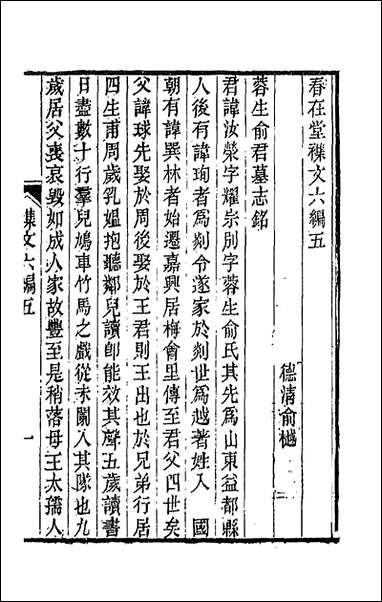 春在堂襍文六編五
德淸俞樾
蓉生俞君墓志銘
君諱汝榮字耀宗別字蓉生俞氏其先爲山東益都縣
人後有諱珣者爲剡令遂家於剡世爲越著姓入　國
朝有諱巽林者始遷嘉興居梅會里傳至君父四世矣
父諱球先娶於周後娶於王君則王出也於兄弟行居
四生甫周歲乳媪抱聽鄰兒讀卽能效其聲五歲讀書
日盡數十行羣兒鳩車竹馬之戲從未闌入其隊也九
歲居父喪哀毀如成人家故豐至是稍落母王太孺人
襍文六編五
一